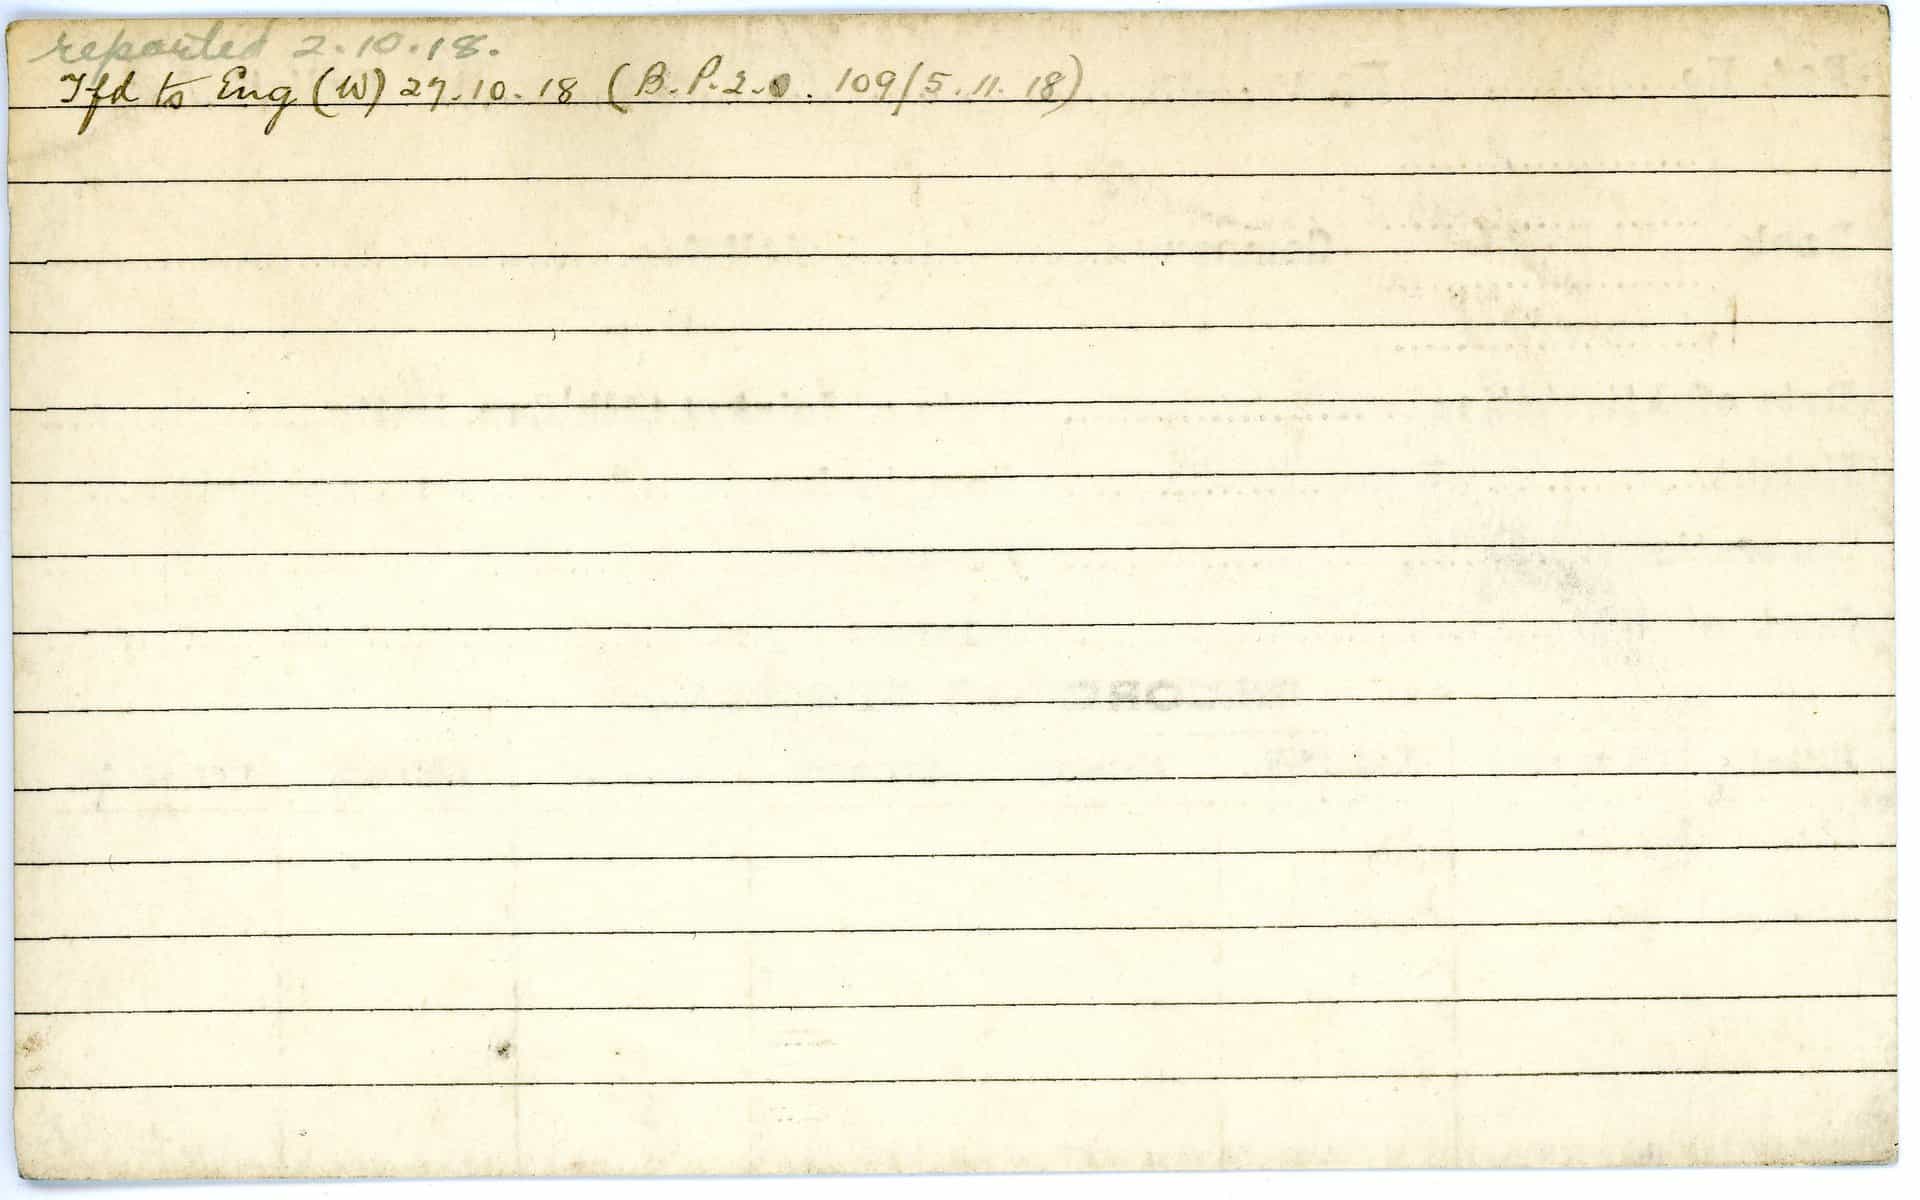 reported 2.10.18.
Tfd to Eng (W) 27.10.18 (B.P.2.0. 109/5.11.18)